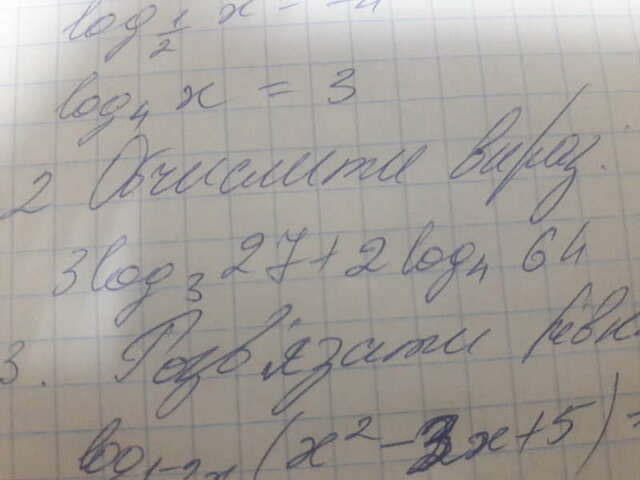 log_{1/2} x = -4
log_4 x = 3
2 Обчислити вираз.
3log_3 27+2log_4 64
3. Розв'язати
(x^2-3x+5)=